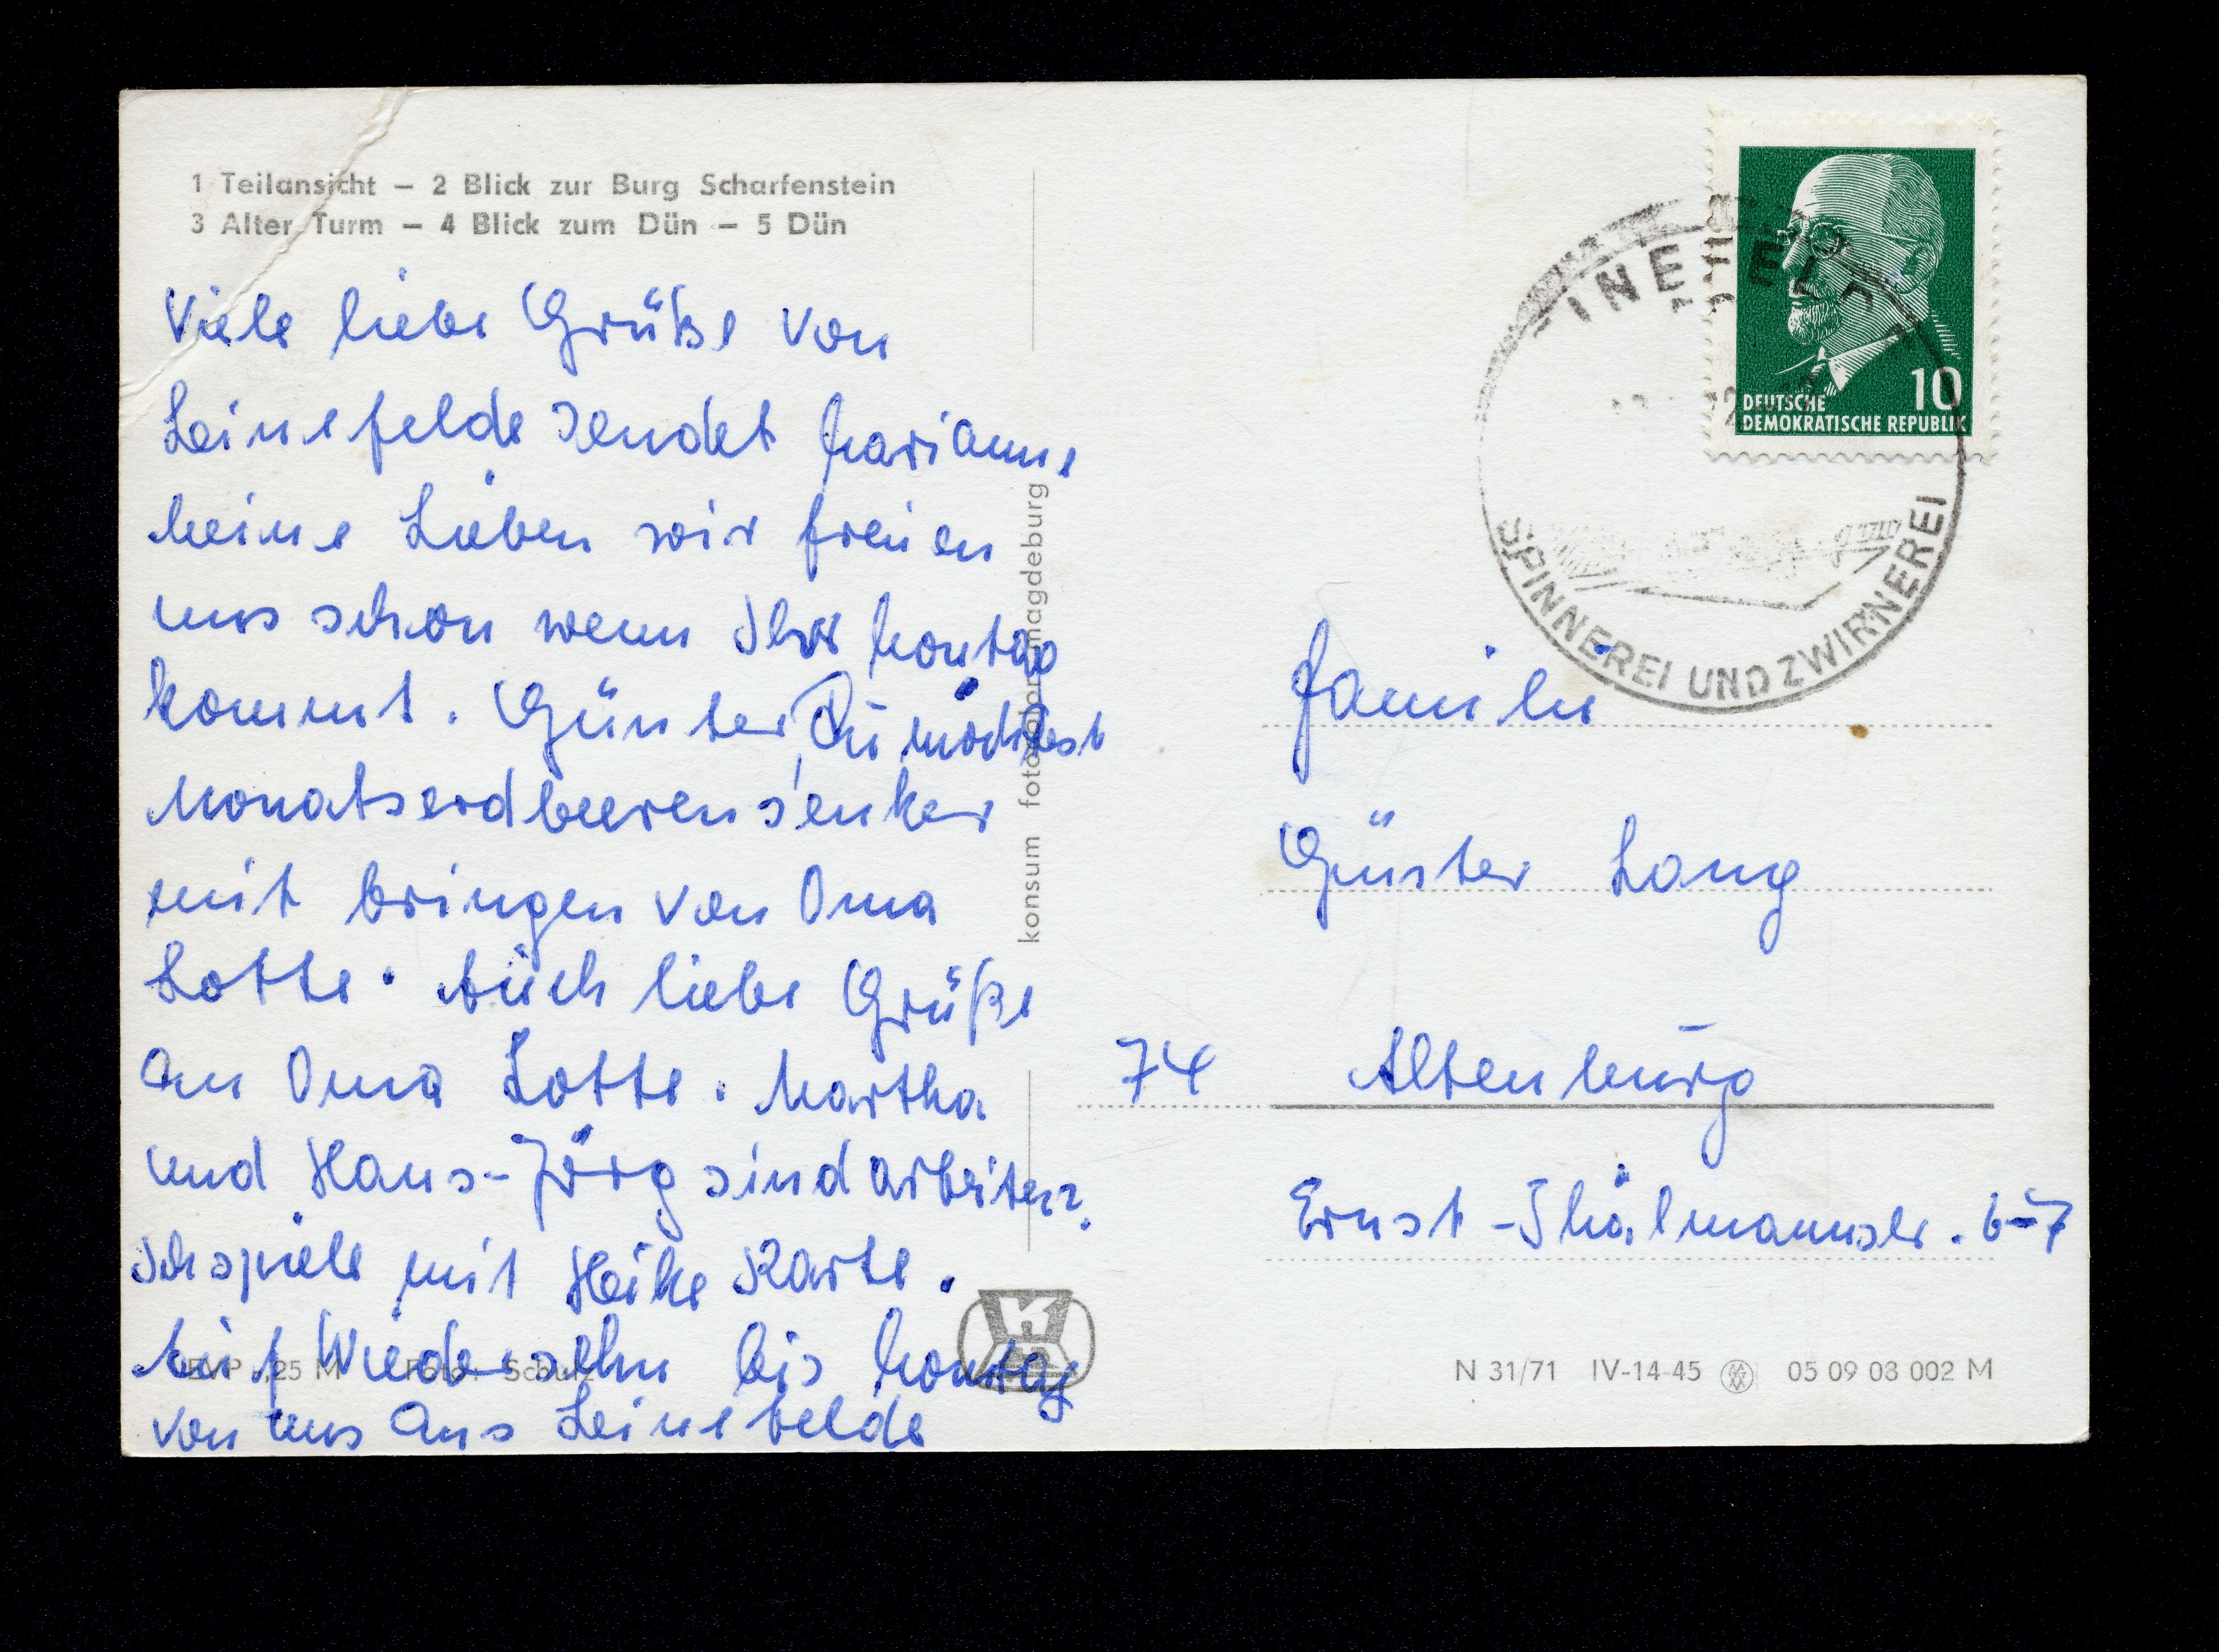 1 Teilansicht – 2 Blick zur Burg Scharfenstein
3 Alter Turm – 4 Blick zum Dün – 5 Dün
Viele liebe Grüße von
Leinefelde sendet Marianne
Meine Lieben wir freuen
uns schon wenn Ihr Montag
kommt. Günter, Du möchtest
Monatserdbeerensenker
mit bringen von Oma
Lotte. Auch liebe Grüße
an Oma Lotte. Martha
und Hans-Jörg sind arbeiten.
Ich spiele mit Heike Karte.
Auf Wiedersehn bis Montag
von uns aus Leinefelde
EVP -,25 M Foto: Schulz
konsum fotocolor magdeburg
DEUTSCHE
DEMOKRATISCHE REPUBLIK
10
INEFELD
SPINNEREI UND ZWIRNEREI
Familie
Günter Lang
74 Altenburg
Ernst-Thälmannstr. 6-7
N 31/71 IV-14-45 05 09 03 002 M